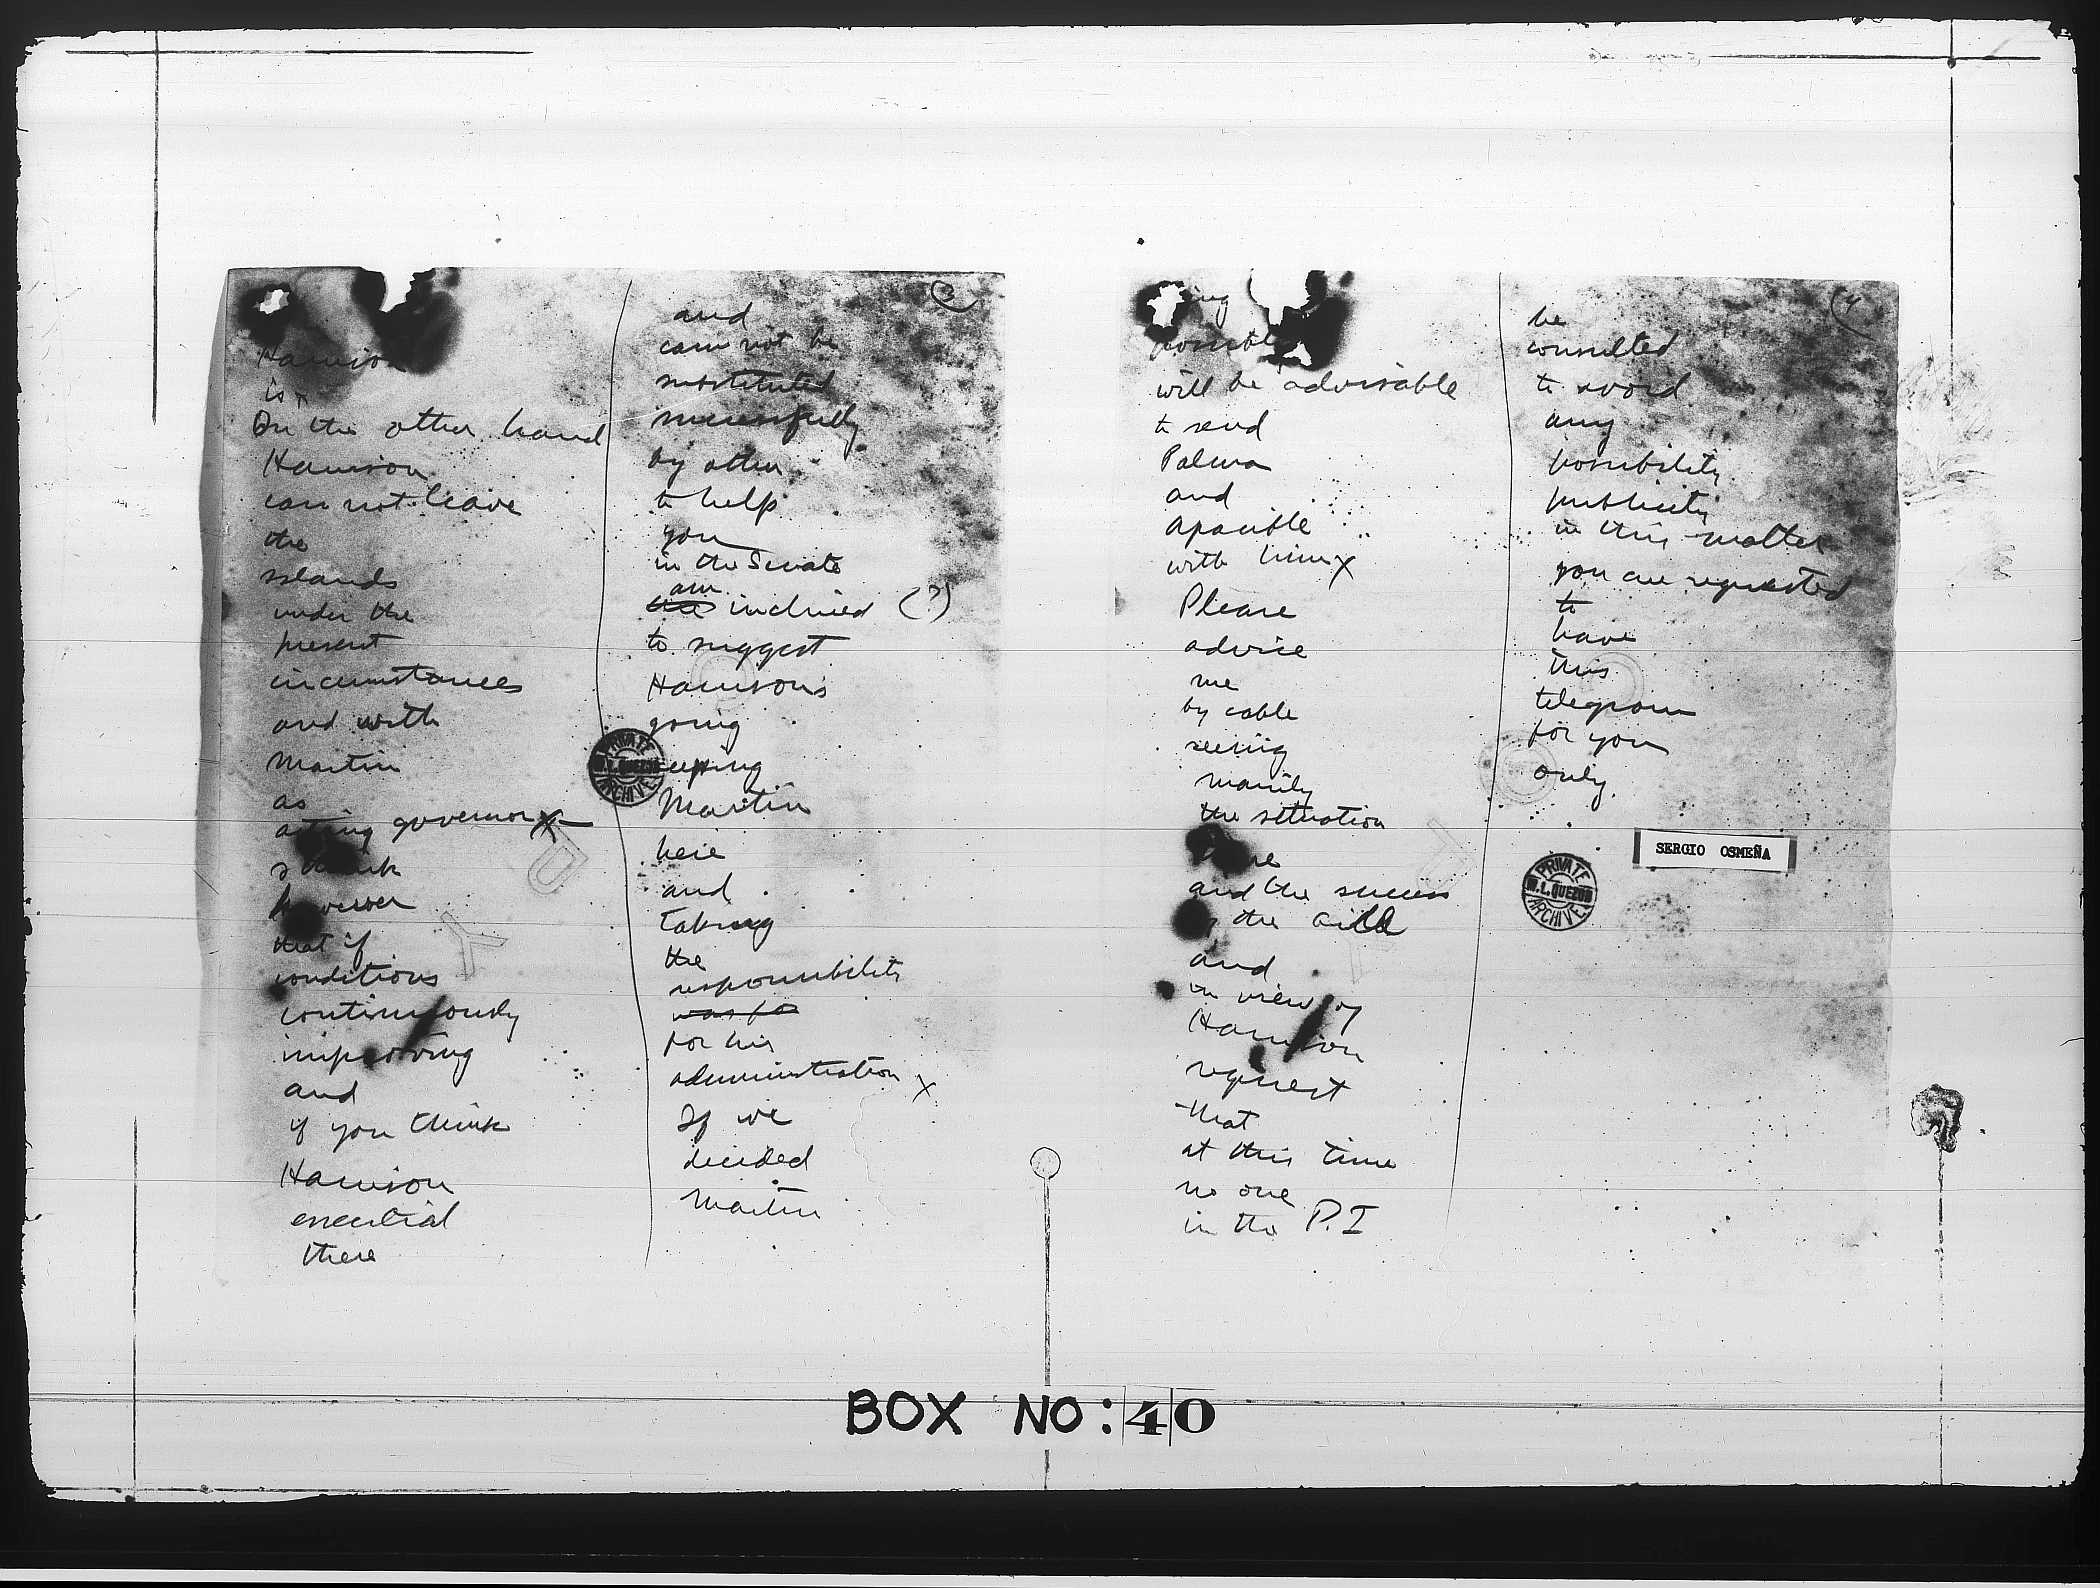 (3
Harrison
is x
On the other hand
Harrison
can not leave
the
islands
under the
present
circumstances
and with
Martin
as
acting governor x
I think
however
that if
conditions
continuously
improving
and
if you think
Harrison
essential
there
and
can not be
substituted
successfully
by other
to help
you
in the Senate
am
inclined (?)
to suggest
Harrison's
going
keeping
Martin
here
and
taking
the
responsibility
was fo
for his
administration x
If we
decided
Martin
PRIVATE
M.L. QUEZON
ARCHIVE
(4
possible
will be advisable
to send
Palma
and
Apacible
with him x
Please
advice
me
by cable
seeing
mainly
the situation
and the success
of the bill
and
in view of
Harrison
request
that
at this time
no one
in the P.I
be
consulted
to avoid
any
possibility
publicity
in this matter
you are requested
to
have
this
telegram
for you
only.
SERGIO OSMEÑA
PRIVATE
M.L. QUEZON
ARCHIVE
BOX NO: 40